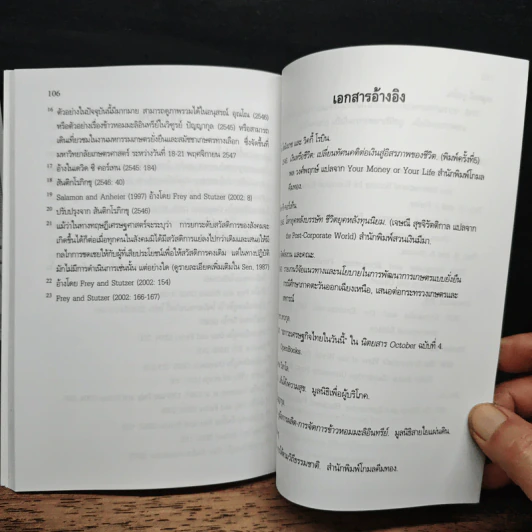 106
16 ตัวอย่างในปัจจุบันนี้มีมากมาย สามารถดูภาพรวมได้ในอนุสรณ์ อุณโณ (2546)
หรือตัวอย่างเรื่องข้าวหอมมะลิอินทรีย์ในวิฑูรย์ ปัญญากุล (2545) หรือสามารถ
เดินเที่ยวชมในงานมหกรรมเกษตรยั่งยืนและสมัชชาเกษตรทางเลือก ซึ่งจัดขึ้นที่
มหาวิทยาลัยเกษตรศาสตร์ ระหว่างวันที่ 18-21 พฤศจิกายน 2547
17 อ้างในเดวิด ซี คอร์เทน (2545: 184)
18 สันติกโรภิกขุ (2546: 40)
19 Salamon and Anheier (1997) อ้างโดย Frey and Stutzer (2002: 8)
20 ปรับปรุงจาก สันติกโรภิกขุ (2546)
21 แม้ว่าในทางทฤษฎีเศรษฐศาสตร์จะระบุว่า การยกระดับสวัสดิการของสังคมจะ
เกิดขึ้นได้ก็ต่อเมื่อทุกคนในสังคมมีได้มีสวัสดิการแย่ลงไปกว่าเดิมและเสนอให้มี
กลไกการชดเชยให้กับผู้ที่เสียประโยชน์เพื่อให้สวัสดิการคงเดิม แต่ในทางปฏิบัติ
มักไม่มีการดำเนินการเช่นนั้น แต่อย่างใด (ดูรายละเอียดเพิ่มเติมใน Sen, 1987)
22 อ้างโดย Frey and Stutzer (2002: 154)
23 Frey and Stutzer (2002: 166-167)
เอกสารอ้างอิง
และ วิคกี้ โรบิน.
เงินหรือชีวิต: เปลี่ยนทัศนคติต่อเงินสู่อิสรภาพของชีวิต. (พิมพ์ครั้งที่6)
แปลจาก Your Money or Your Life สำนักพิมพ์โกมล
คีมทอง.
โลกยุคหลังบรรษัท ชีวิตยุคหลังทุนนิยม. (เจษณี สุขจิรัตติกาล แปลจาก
the Post-Corporate World) สำนักพิมพ์สวนเงินมีมา.
และคณะ.
รายงานวิจัยแนวทางและนโยบายในการพัฒนาการเกษตรแบบยั่งยืน
กรณีศึกษาภาคตะวันออกเฉียงเหนือ, เสนอต่อกระทรวงเกษตรและ
สหกรณ์
ภาวะเศรษฐกิจไทยในวันนี้" ใน นิตยสาร October ฉบับที่ 4
OpenBooks.
มูลนิธิเพื่อผู้บริโภค.
การผลิต-การจัดการข้าวหอมมะลิอินทรีย์. มูลนิธิสายใยแผ่นดิน.
สำนักพิมพ์โกมลคีมทอง.